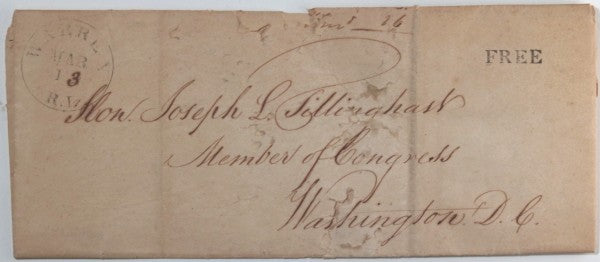 16
MAR
13
R.I.
FREE
Hon. Joseph L. Tillinghast
Member of Congress
Washington. D. C.